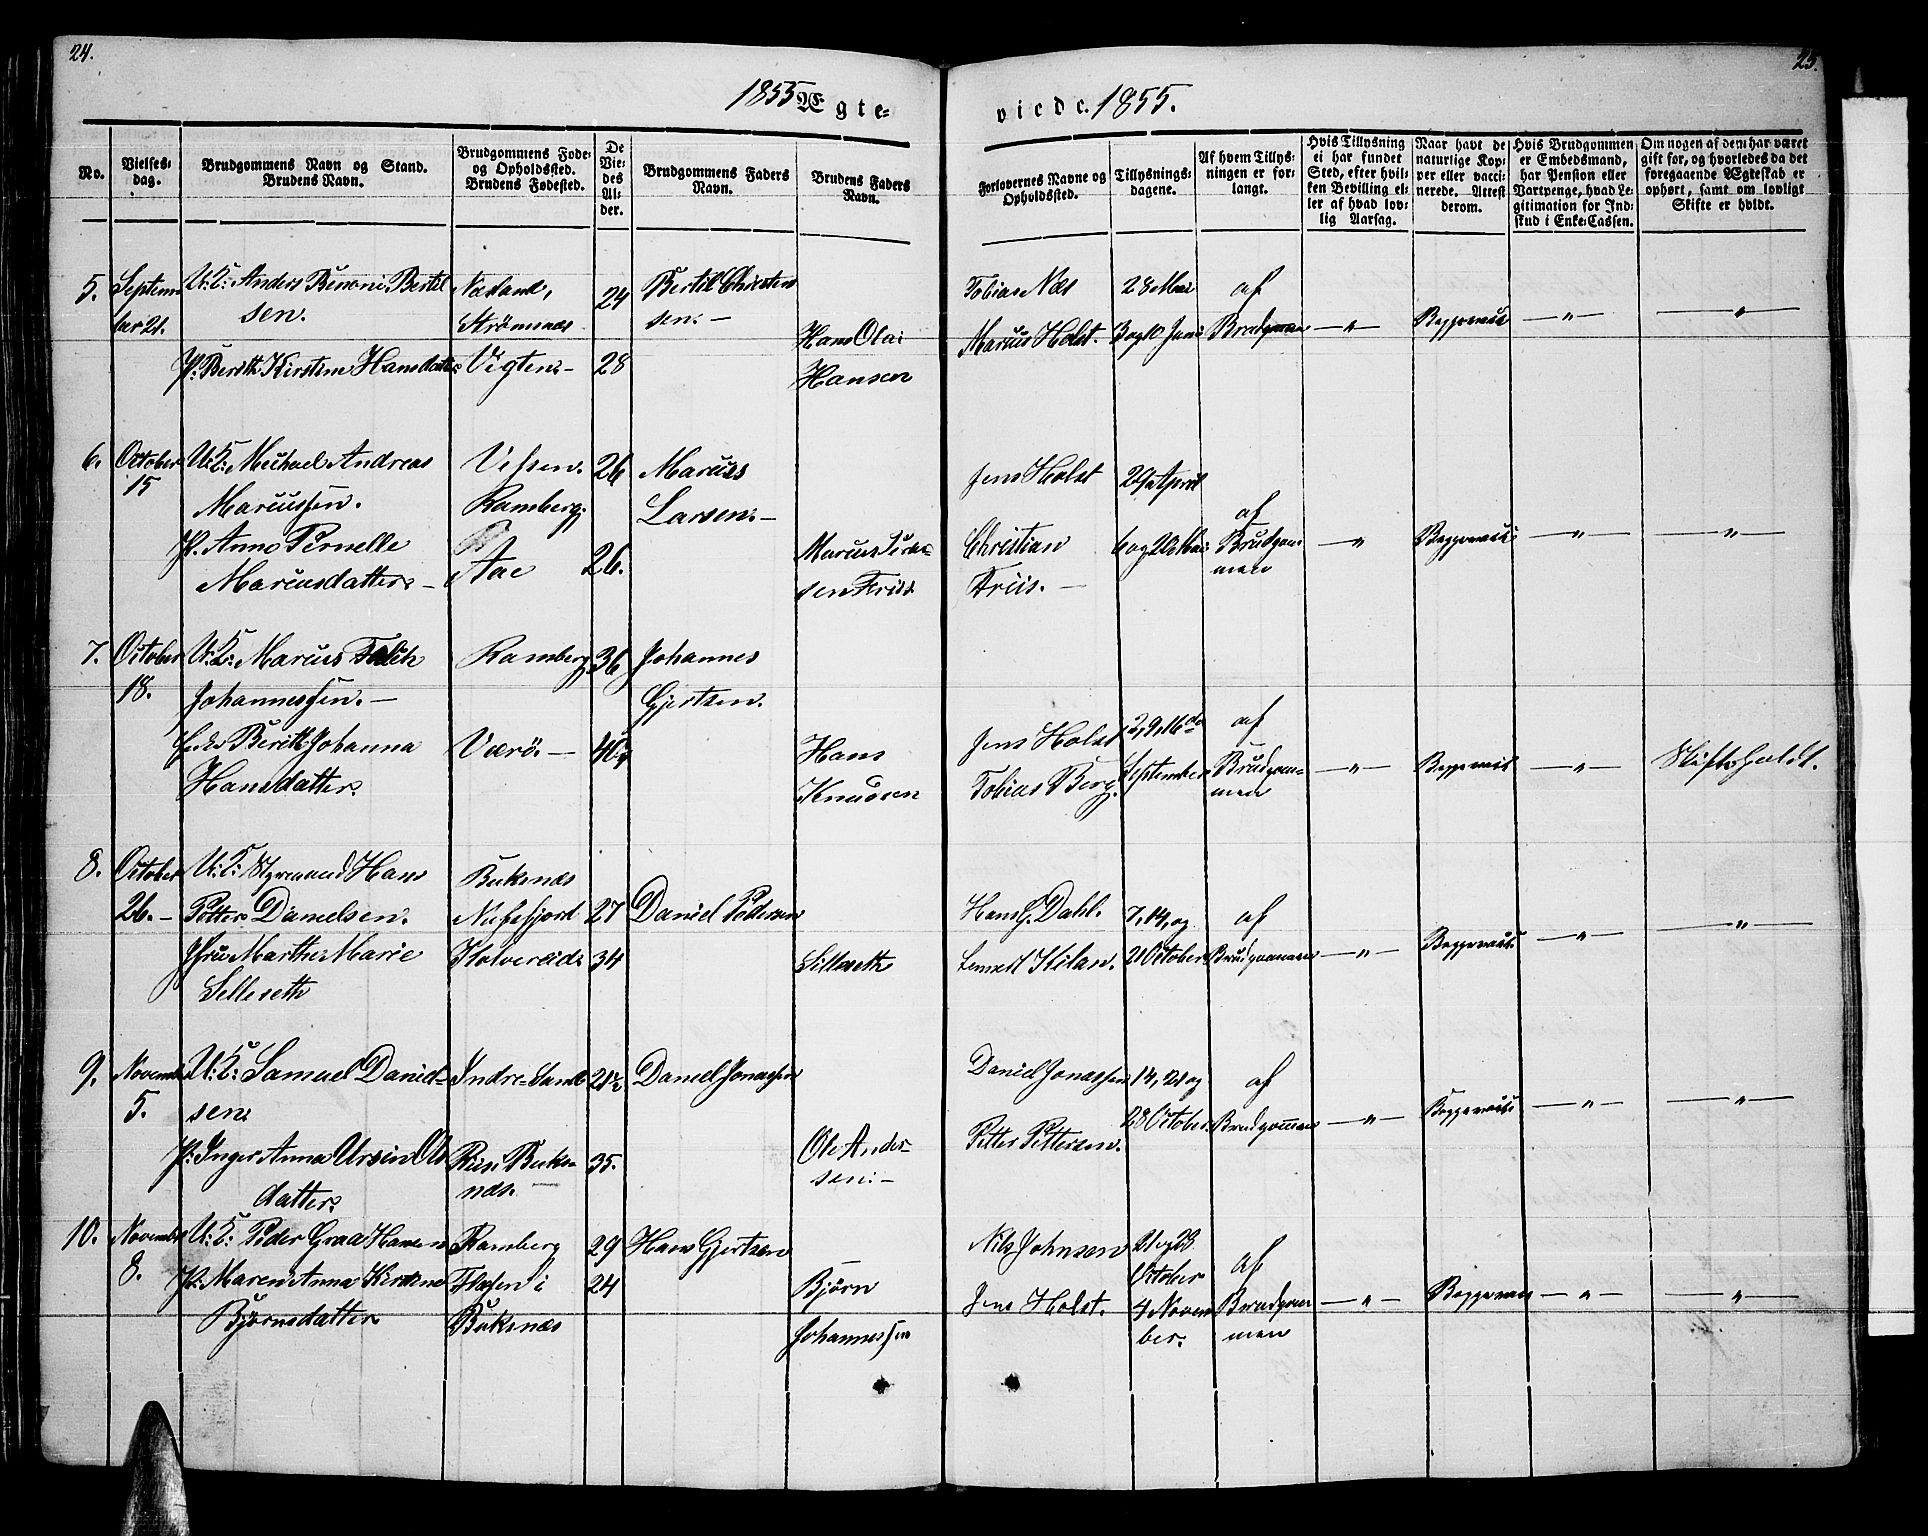 24.
25.
1855 Ægte-
viede. 1855.
No.
Vielses-
dag.
Brudgommens Navn og Stand.
Brudens Navn.
Brudgommens Føde-
og Opholdssted.
Brudens Fødested.
De
Vie-
des
Al-
der.
Brudgommens Faders
Navn.
Brudens Faders
Navn.
Forlovernes Navne og
Opholdssted.
Tillysnings-
dagene.
Af hvem Tillys-
ningen er for-
langt.
Hvis Tillysning
ei har fundet
Sted, efter hvil-
ken Bevilling el-
ler af hvad lov-
lig Aarsag.
Naar havt de
naturlige Kop-
per eller vacci-
nerede. Attest
derom.
Hvis Brudgommen
er Embedsmand,
har Pension eller
Vartpenge, hvad Le-
gitimation for Ind-
skud i Enke-Cassen.
Om nogen af dem har været
gift før, og hvorledes da det
foregaaende Ægteskab er
ophørt, samt om lovligt
Skifte er holdt.
5.
Septem-
ber 21.
U: K: Anders Benoni Bertil
sen.
P: Berith Kirstine Hansdatter
Næsland,
Strømnæs
Vigten -
24
28
Bertil Christen
sen. -
Hans Olai
Hansen
Tobias Næs
Marcus Holst.
28 Mai
3 og 10 Juni
af
Brudgomen
— " —
Begge vacc
— " —
— " —
6.
October
15
U: K: Michael Andreas
Marcussen.
P. Anne Pernelle
Marcusdatter. -
Vefsen.
Ramberg.
Aae
26
26.
Marcus
Larsen. -
Marcus Peder-
sen Friis
Jens Holst
Christian
Friis. -
29de April
6 og 20 Mai
af
Brudgom-
men
— " —
Begge vacc:
— " —
— " —
7.
October
18.
U: K: Marcus Falch
Johannessen. -
E. Berith Johanna
Hansdatter.
Ramberg
Værø. -
36
40
Johannes
Gjertsen.
Hans
Knudsen
Jens Holst
Tobias Berg.
2, 9, 16de
September
af
Brudgom-
men
— " —
Begge vacc
— " —
Skifte holdt.
8.
October
26. -
U: K: Styrmand Hans
Petter Danielsen.
Jfru Marthe Marie
Selleseth
Buksnæs
Nufsfjord
Holvereide
27
34
Daniel Pedersen
Silleseth
Hans G. Dahl.
Lennert Kilan.
7, 14, og
21 October
af
Brudgommen
— " —
Begge vacc:
— " —
— " —
9.
Novembr
5.
U: K: Samuel Daniel-
sen
P: Inger Anna Ursin Ols
datter.
Indre-Sand
Buks-
næs. -
21½
35.
Daniel Jonassen
Ole Ander-
sen. -
Daniel Jonassen
Petter Pettersen.
14, 21 og
28 October.
af
Brudgommen
— " —
Begge vacc:
— " —
— " —
10.
Novembr
8.
U: K: Peder Graa Hansen
P: Maren Anna Kirstine
Bjørnsdatter
Ramberg
i
Buksnæs
29
24
Hans Gjertsen
Bjørn
Johannessen
Nils Johnsen
Jens Holst.
21 og 28
October
4 Novem
ber.
af
Brudgom
men
— " —
Begge vacc
— " —
— " —